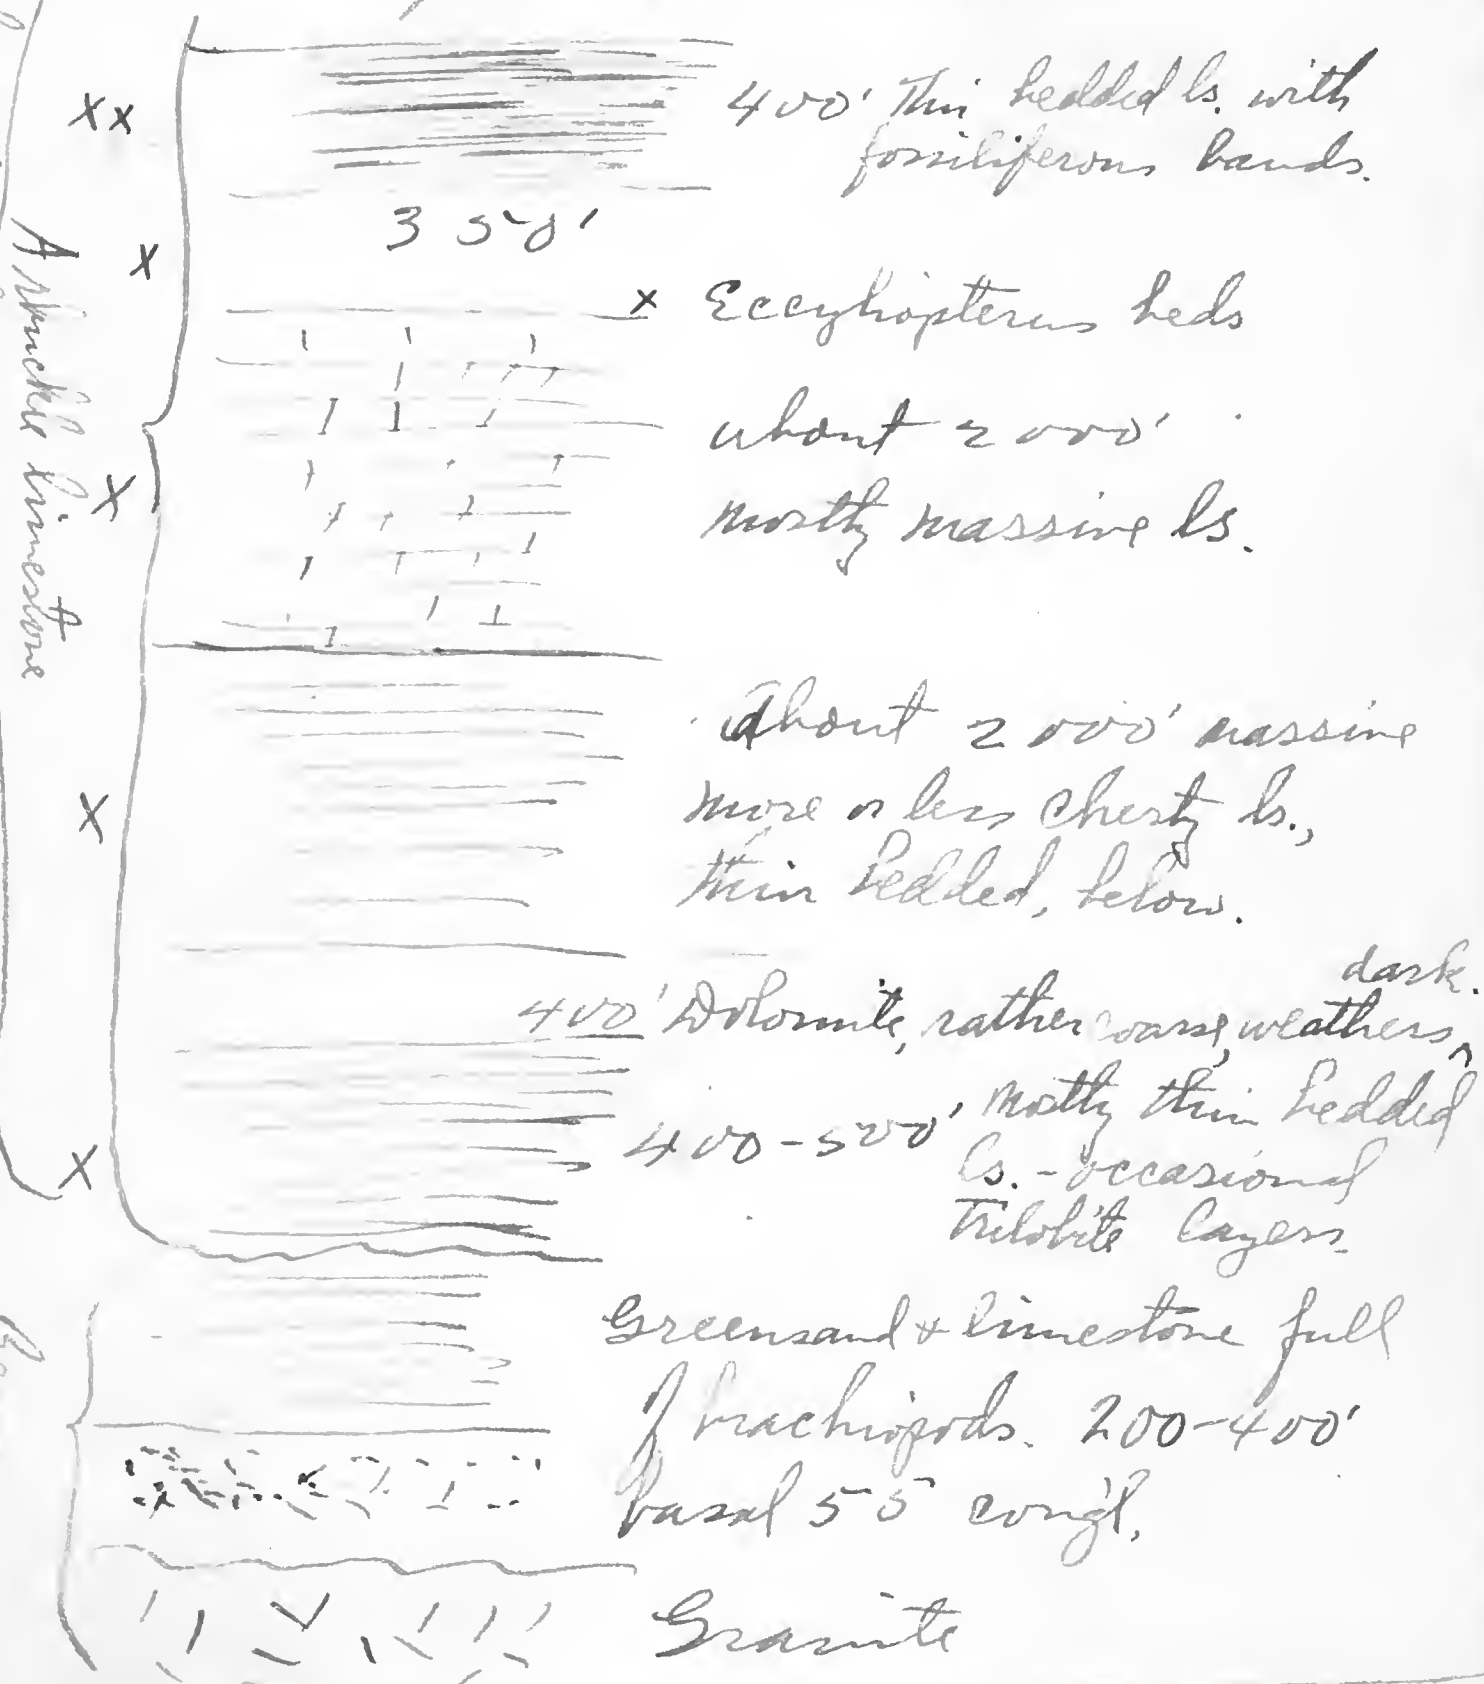 xx
400' Thin bedded ls. with
fossiliferous bands.
x
350'
x Eccyliopterus beds
about 2000'
x
mostly massive ls.
Arbuckle limestone
About 2000' massive
x
more or less cherty ls.,
thin bedded, below.
dark.
400' Dolomite, rather coarse, weathers ^
400-500' mostly thin bedded
x
ls. - occasional
Trilobite layers.
Greensand & limestone full
of brachiopods. 200-400'
basal congl.
Granite